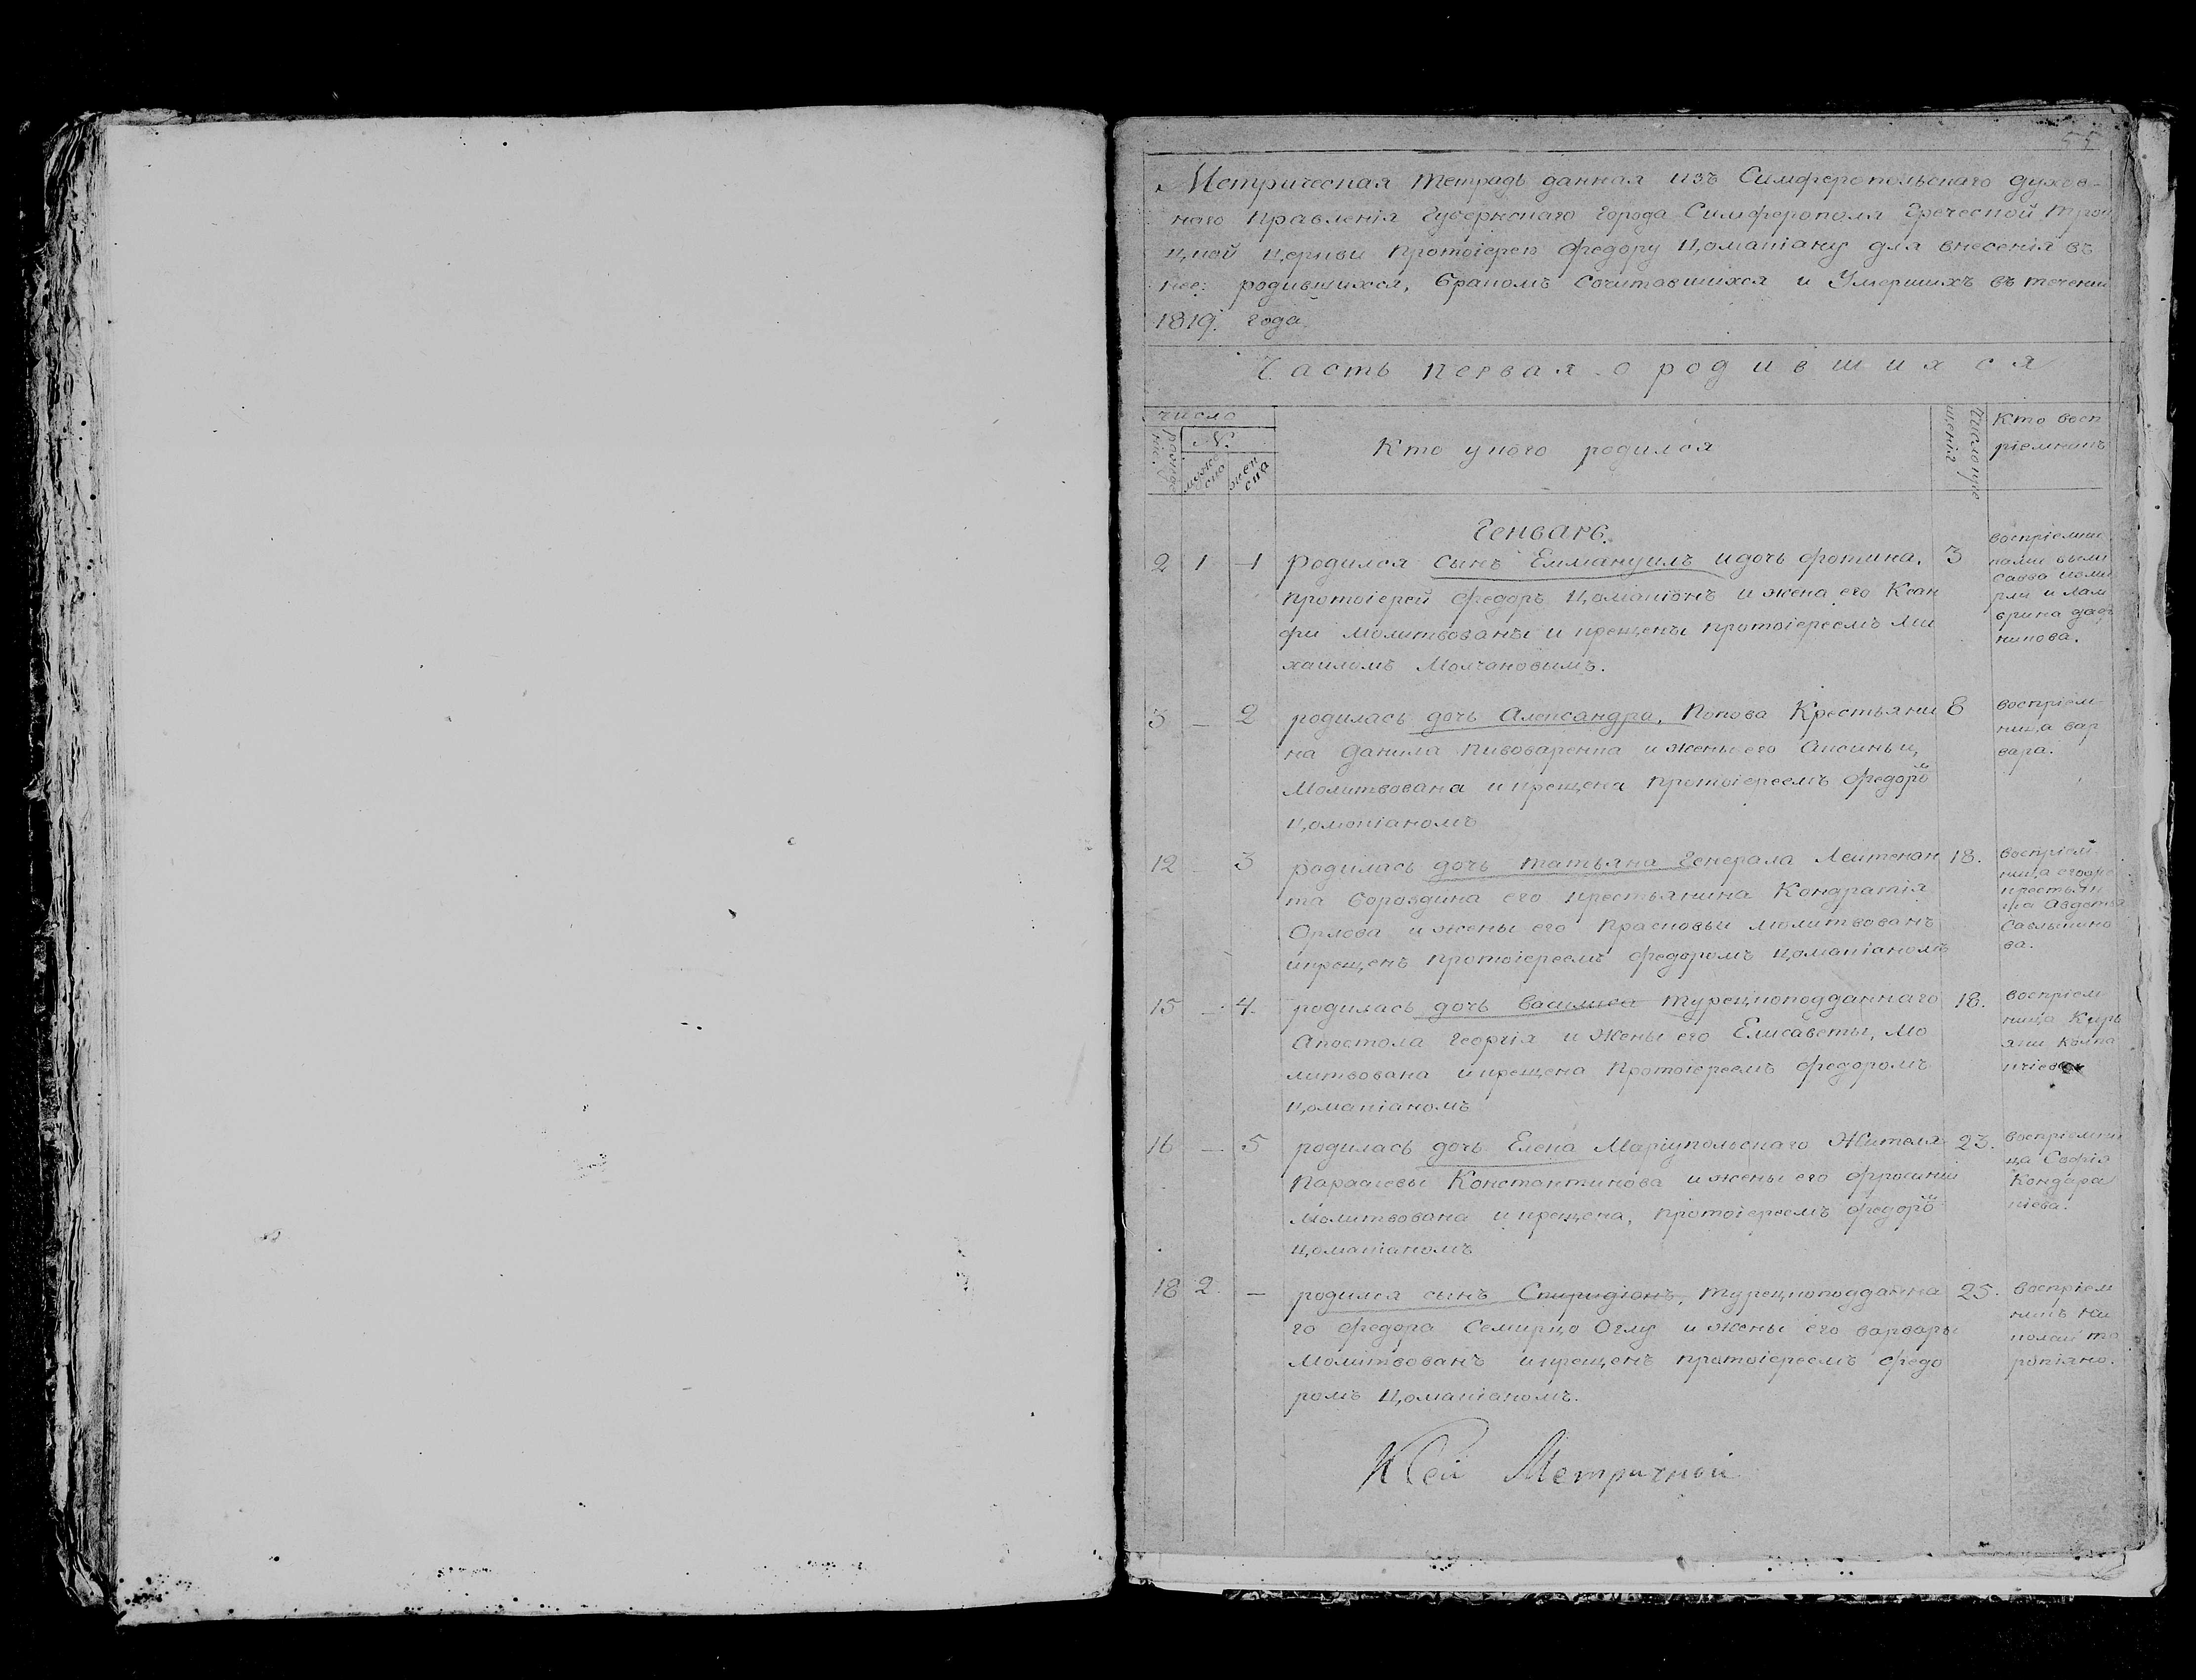 55
Метрическая тетрадь данная изъ Симферопольскаго духов-
наго правленія Губернскаго города Симферополя Греческой трои
цкой церкви протоіерею Федору Цоманіану для внесенія въ
нее: родившихся, бракомъ сочитавшихся и умершихъ въ течении
1819. года
Часть первая о родившихся
число
рожде
нія.
N.
мужс
ска
жен
ска
Кто у кого родился
Число кре
щенія
Кто восп
ріемникъ
Генварь.
2 1 1 Родился сынъ Еммануилъ и дочь фотина, 3
протоіерей Федоръ Цоманіонъ и жена его Ксан
фи молитвованы и крещены протоіереемъ Ми
хаиломъ Молчановымъ.
воспріемни
ками были
Савва
и
нинова.
3 — 2 родилась дочь Александра, Попова Крестьяни 8
на Данила Пивоваренка и жены его Аксиньи,
Молитвована и крещена протоіереемъ Федоро
Цоманіаномъ
воспріем
ница вар
вара.
12 3 родилась дочь татьяна Генерала Лейтенан 18.
та Бороздина его крестьянина Кондратія
Орлова и жены его Прасковьи молитвованъ
и крещенъ протоіереемъ Федоромъ Цоманіаномъ
воспріем
ница его же
крестьян
ка Авдотья
Савлыкино
ва.
15 — 4. родилась дочь василиса турецкоподданнаго 18.
Апостола Георгія и Жены его Елисаветы, Мо
литвована и крещена Протоіереемъ Федоромъ
Цоманіаномъ
воспріем
ница Кирь
яки
16 — 5 родилась дочь Елена Маріупольскаго Жителя 23.
Параскевы Константинова и жены его Фросиніи
Молитвована и крещена, протоіереемъ Федоро
Цоманіаномъ
воспріемни
ца Софія
Кондара
кіева.
18 2. — родился сынъ Спиридіонъ, турецкоподданна 25.
го Федора Семирцо Оглу и жены его варвары
Молитвованъ и крещенъ протоіереемъ Федо
ромъ Цоманіаномъ.
воспріем
никъ Ни
колай то
ропіяно.
К Сей Метричной